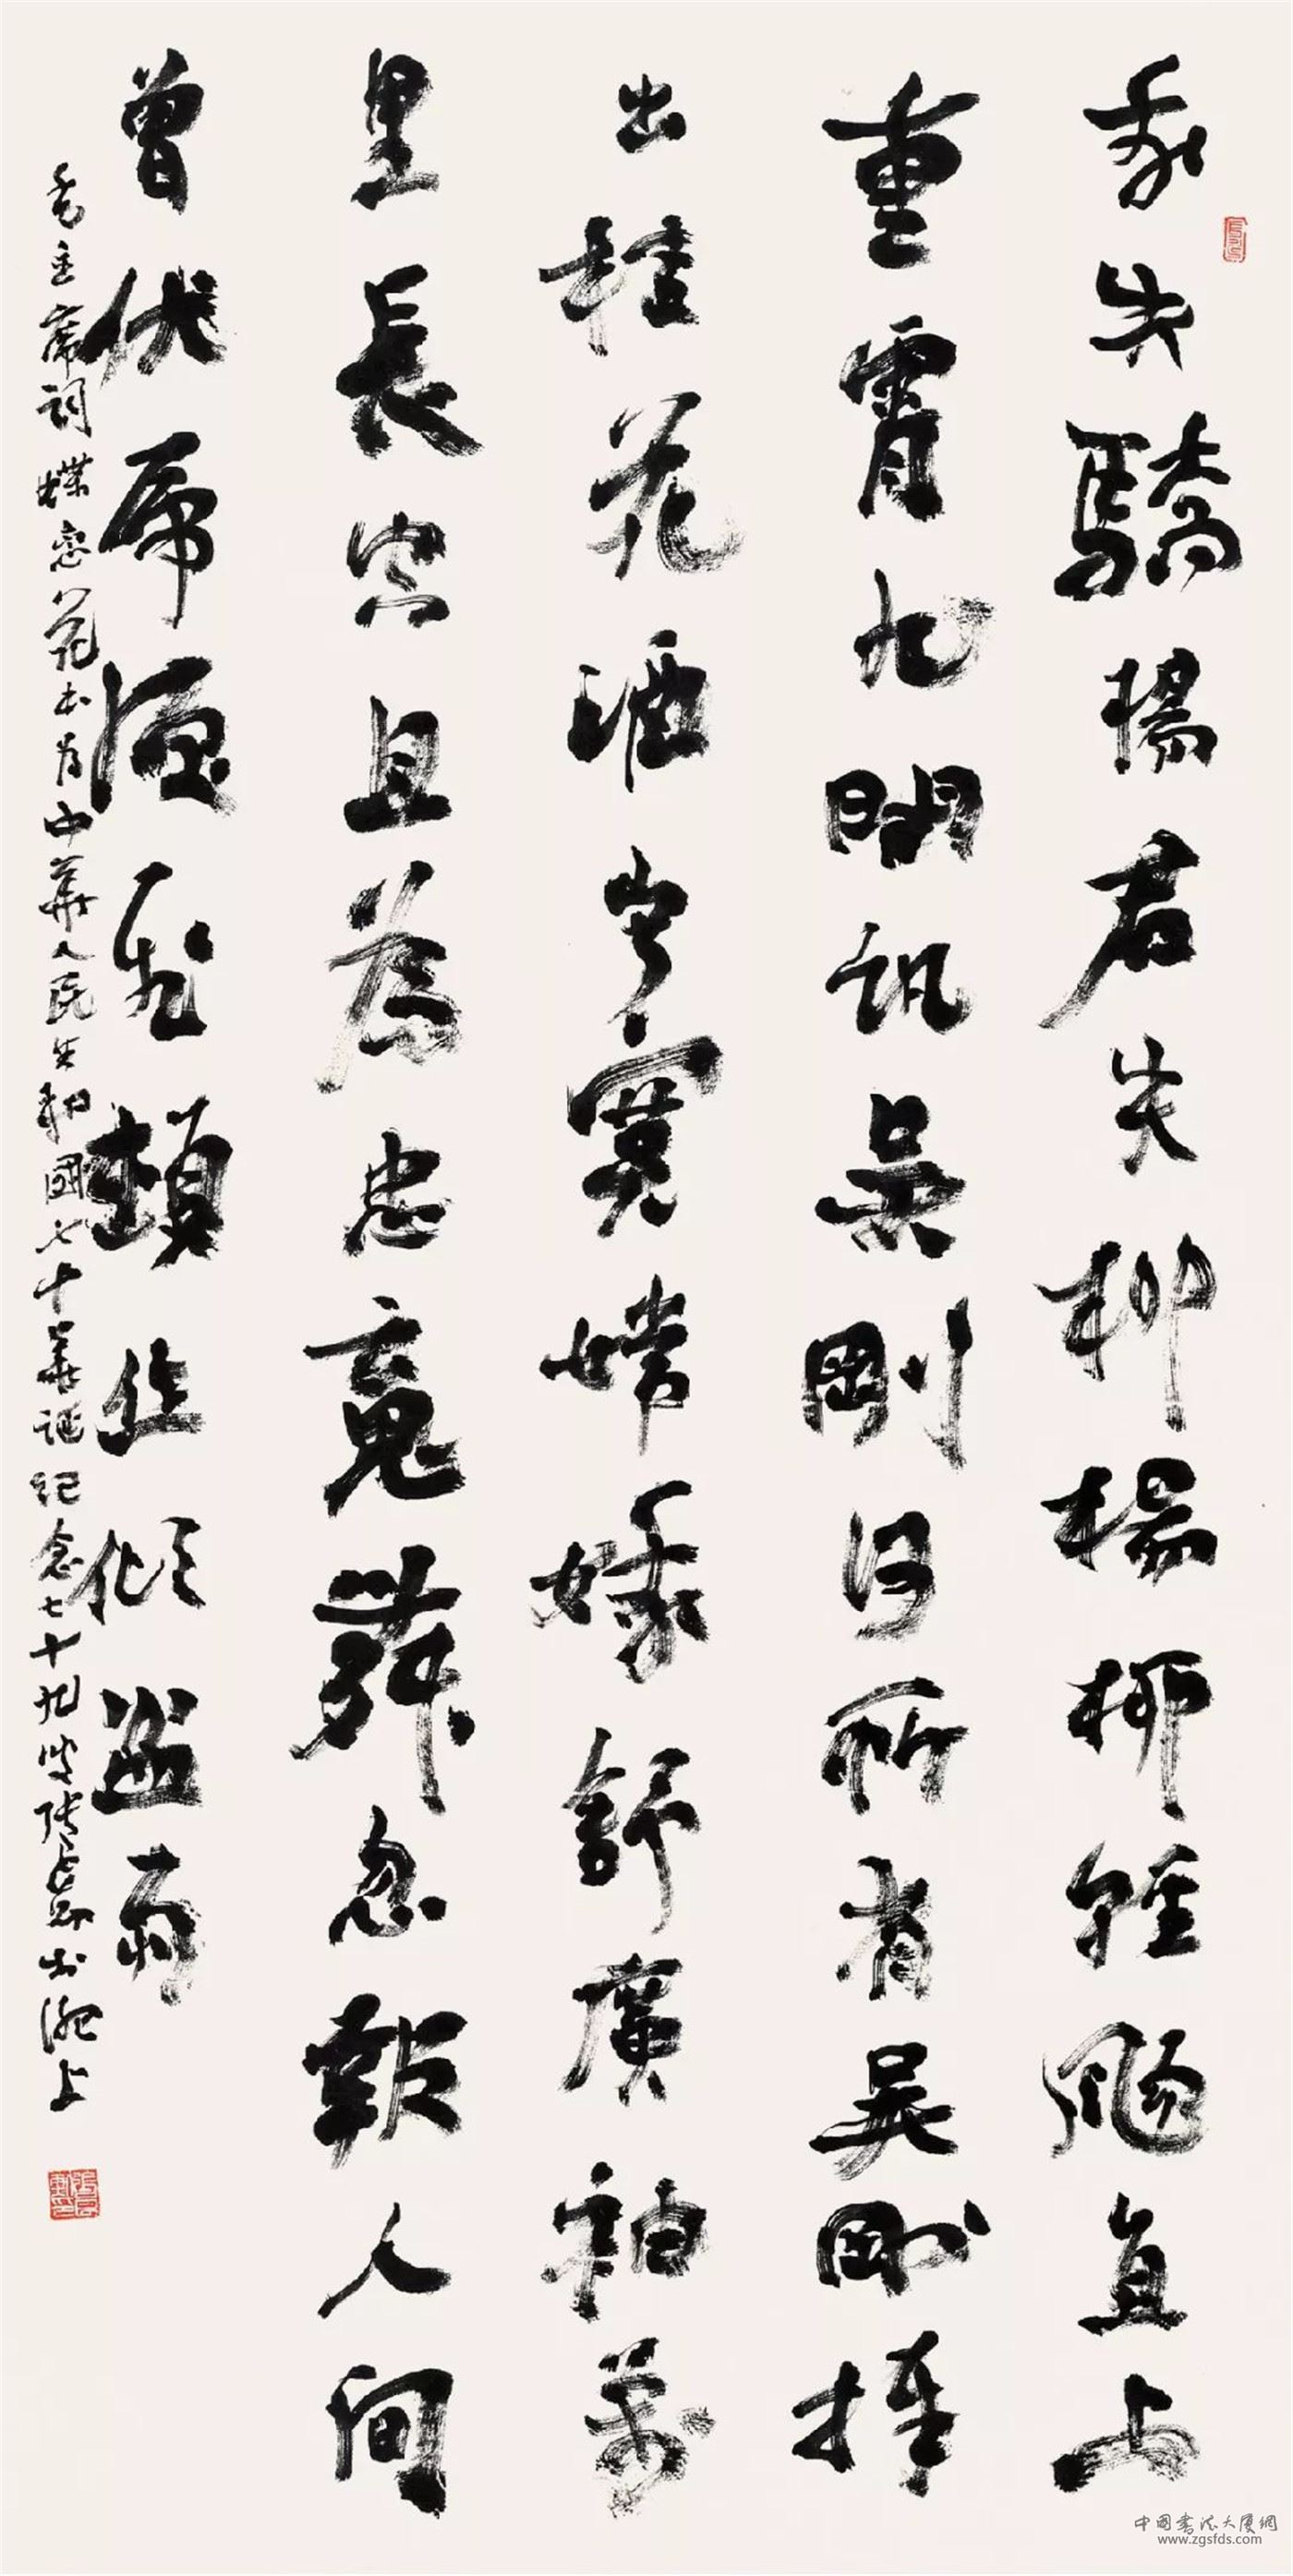 我失驕楊君失柳楊柳輕颺直上
重霄九問訊吳剛何所有吳剛捧
出桂花酒寂寞嫦娥舒廣袖萬
里長空且為忠魂舞忽報人間
曾伏虎淚飛頓作傾盆雨
毛主席詞蝶恋花书为中華人民共和國七十華誕紀念七十九叟張於滬上
中國書法大廈網
www.zgsfds.com